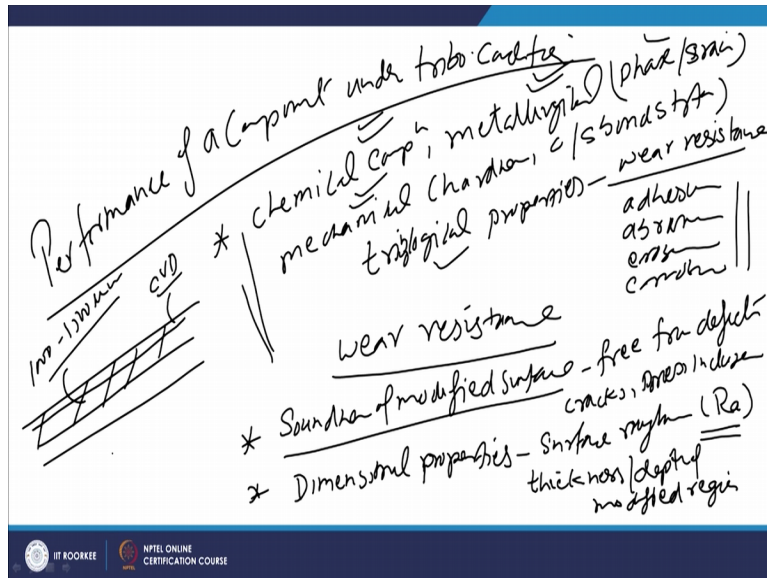 Performance of a Component under tribo. Condition
* chemical Compn, metallurgical (phase/grain)
mechanical (hardness, c/s bond strength)
tribological properties – wear resistance
adhesive
abrasive
erosive
corrosive
CVD
wear resistance
* Soundness of modified surface – free from defects
cracks, inclusion
* Dimensional properties – Surface roughness (Ra)
thickness/depth of
modified region
IIT ROORKEE
NPTEL ONLINE
CERTIFICATION COURSE